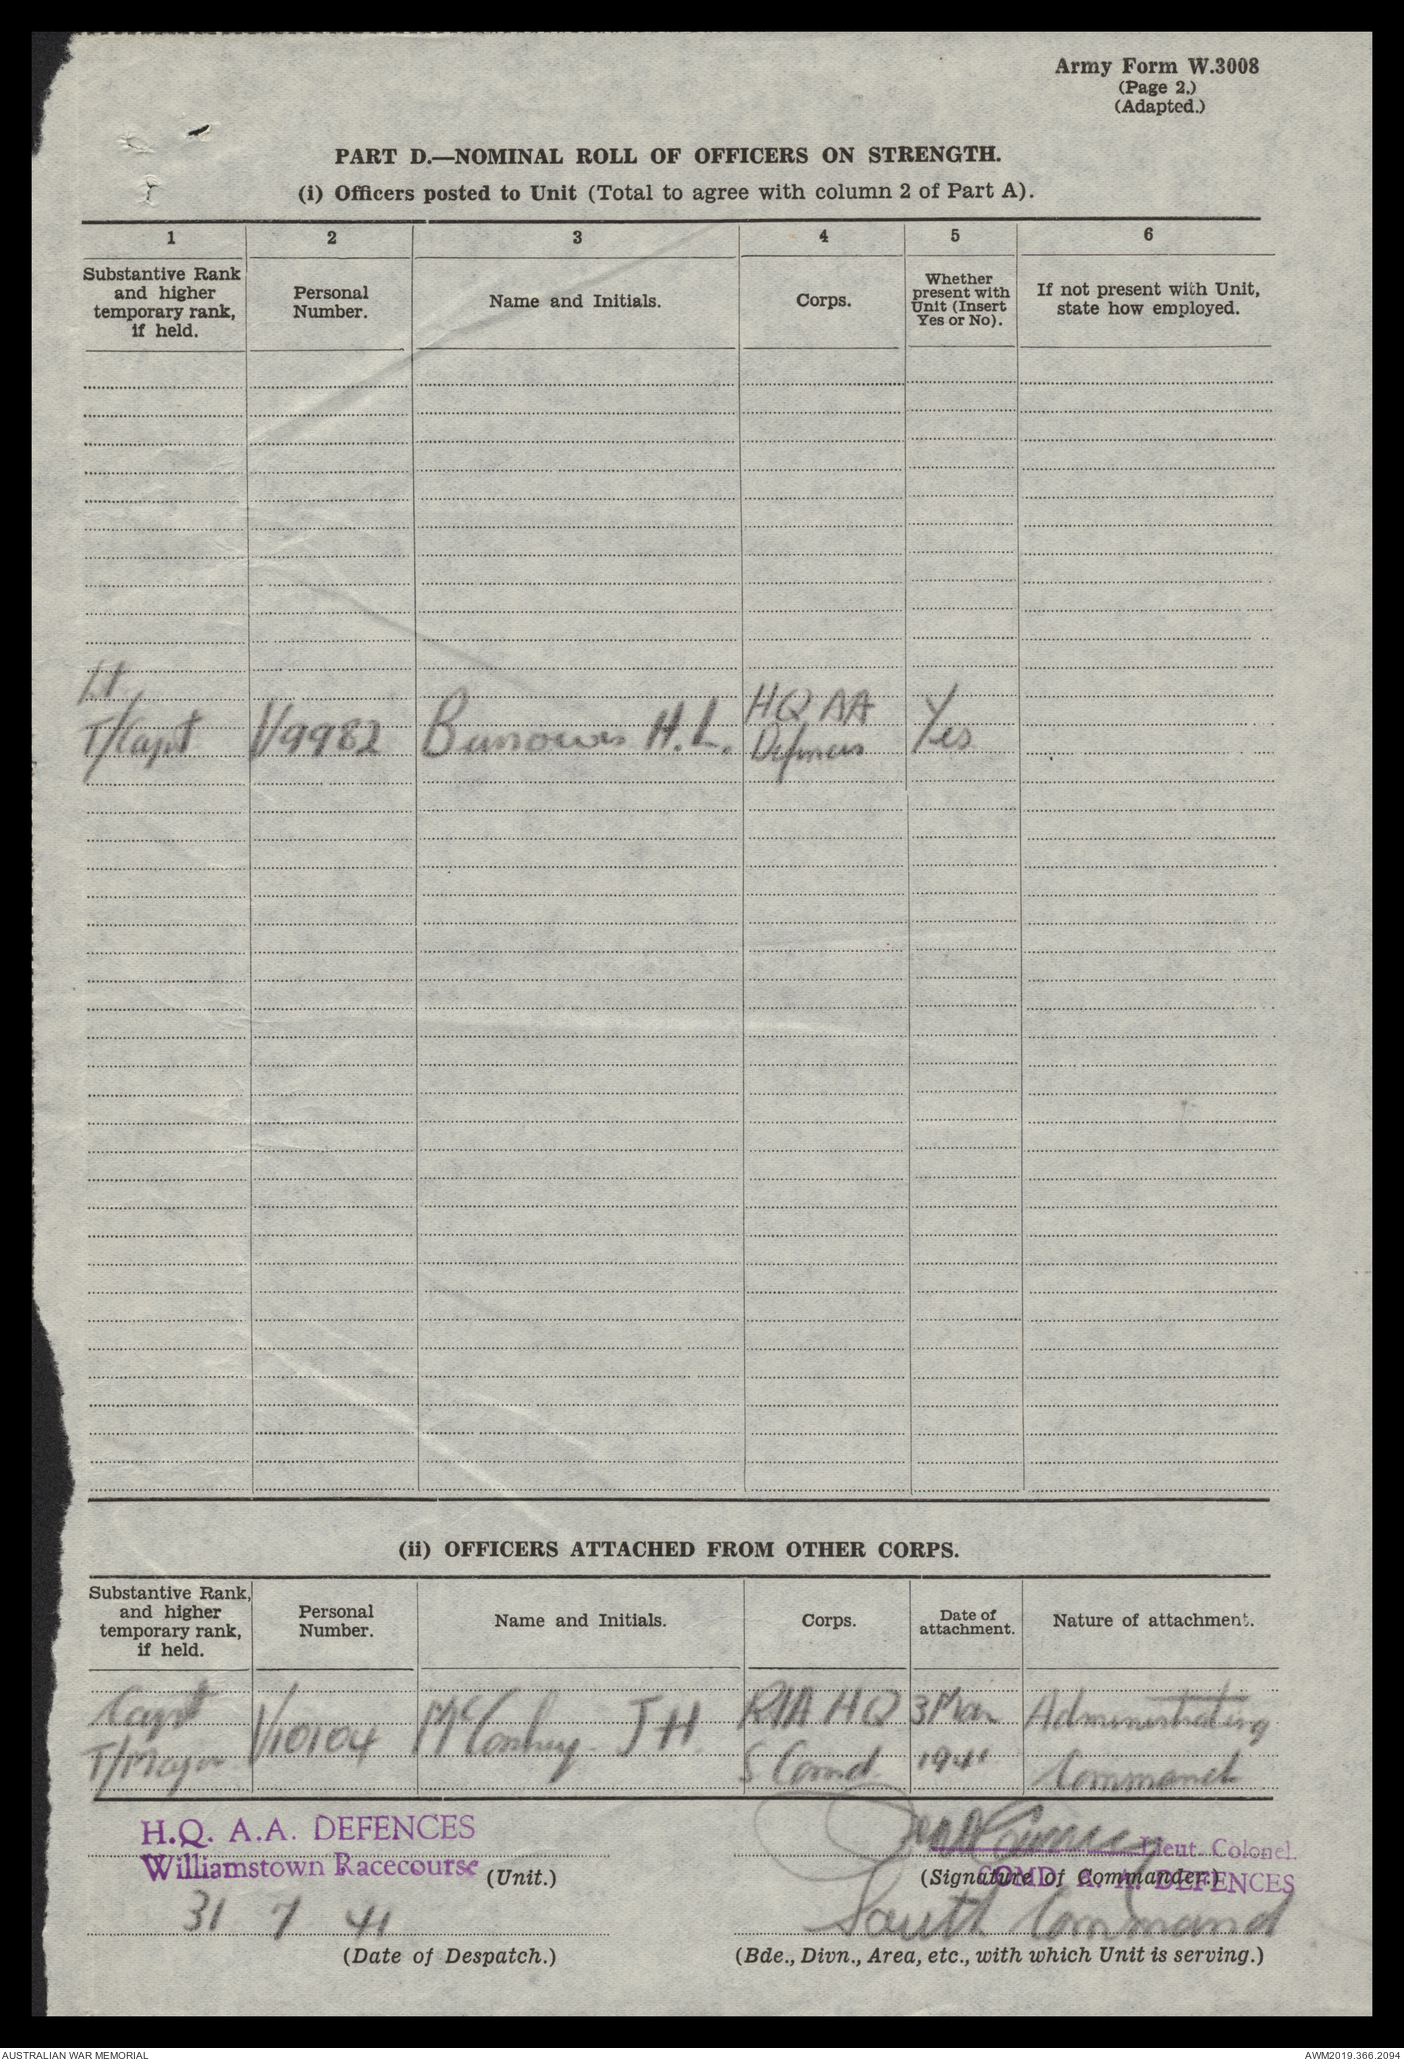 Army Form W.3008
(Page 2.)
(Adapted.)
PART D.—NOMINAL ROLL OF OFFICERS ON STRENGTH.
(i) Officers posted to Unit (Total to agree with column 2 of Part A).
1 2 3 4 5 6
Substantive Rank and higher temporary rank, if held.
Personal Number.
Name and Initials.
Corps.
Whether present with Unit (Insert Yes or No).
If not present with Unit, state how employed.
Lt
T/Capt V9982 Burrows H.L. HQ AA Defences Yes
(ii) OFFICERS ATTACHED FROM OTHER CORPS.
Substantive Rank, and higher temporary rank, if held.
Personal Number.
Name and Initials.
Corps.
Date of attachment.
Nature of attachment.
Capt V10104 J H RAA HQ 3 Mar Administrating
T/Major S Comd 1941 Command
H.Q. A.A. DEFENCES
Williamstown Racecourse (Unit.)
Lieut. Colonel.
(Signature of Commander.)
COMD. A. A. DEFENCES
31 7 41
South Command
(Date of Despatch.)
(Bde., Divn., Area, etc., with which Unit is serving.)
AUSTRALIAN WAR MEMORIAL
AWM2019.366.2094